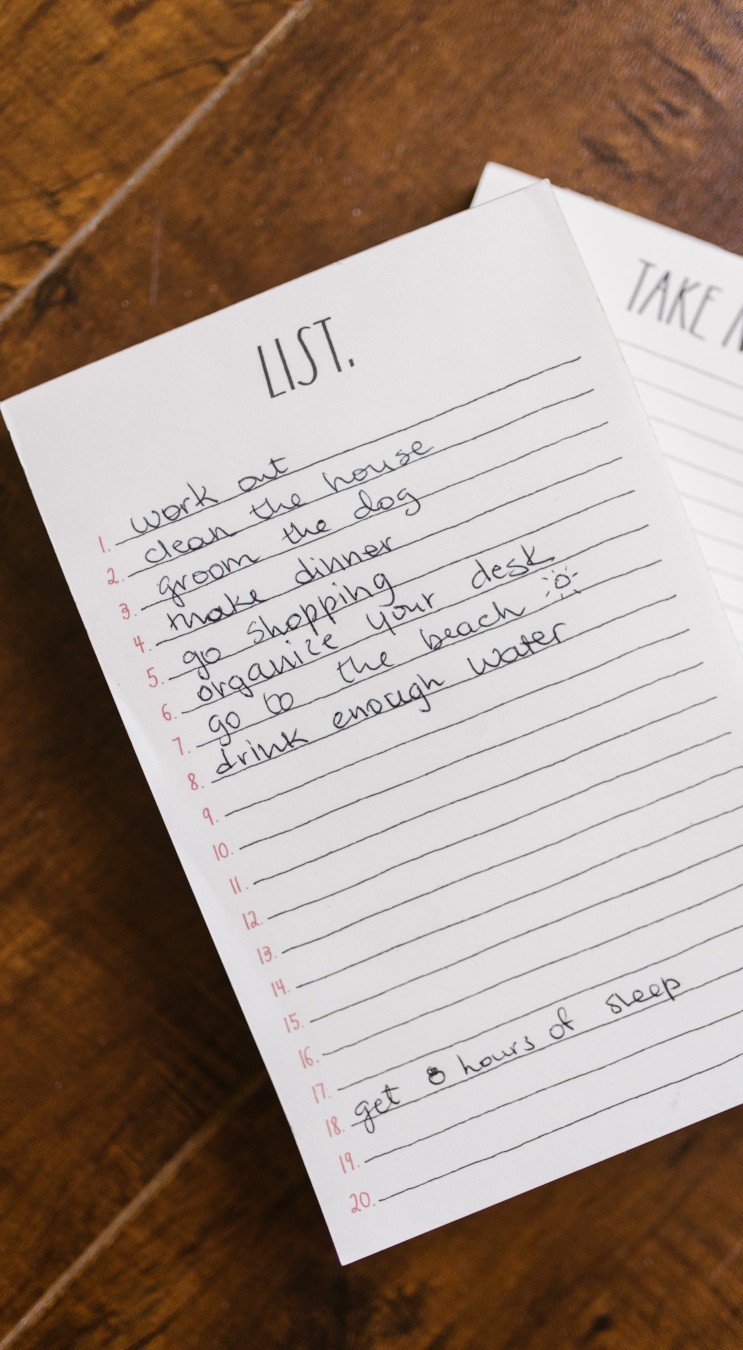 LIST.
1. work out
2. clean the house
3. groom the dog
4. make dinner
5. go shopping
6. organize your desk
7. go to the beach
8. drink enough water
9.
10.
11.
12.
13.
14.
15.
16.
17.
18. get 8 hours of sleep
19.
20.
TAKE N